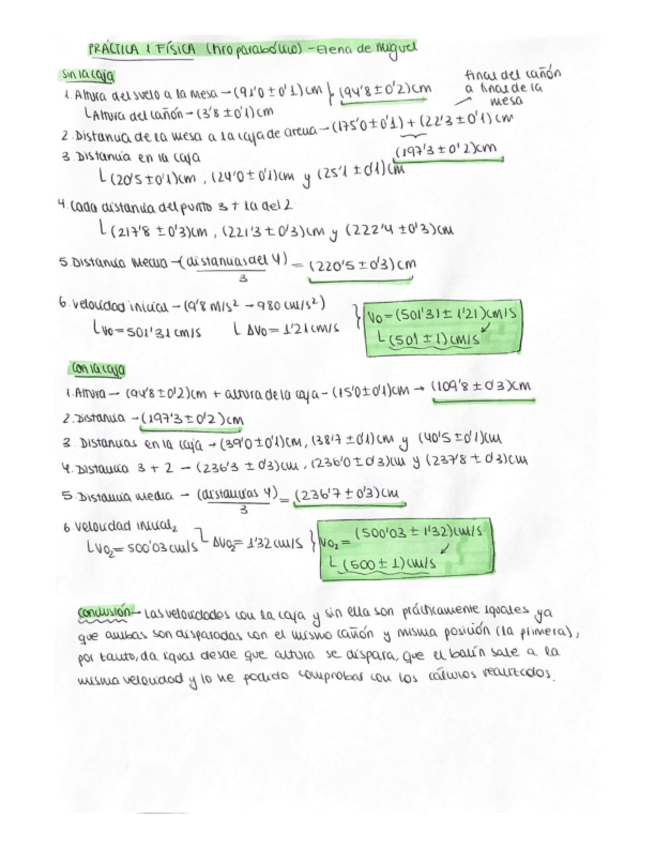 PRÁCTICA 1 FÍSICA (tiro parabólico) - Elena de Miguel
Sin la caja
1. Altura del suelo a la mesa → (91'0 ± 0'1) cm } (94'8 ± 0'2) cm
final del cañón a final de la mesa
└ Altura del cañón → (3'8 ± 0'1) cm
2. Distancia de la mesa a la caja de arena → (175'0 ± 0'1) + (22'3 ± 0'1) cm
(197'3 ± 0'2) cm
3. Distancia en la caja
└ (20'5 ± 0'1) cm, (24'0 ± 0'1) cm y (25'1 ± 0'1) cm
4. Cada distancia del punto 3 + la del 2
└ (217'8 ± 0'3) cm, (221'3 ± 0'3) cm y (222'4 ± 0'3) cm
5. Distancia media → (distancias del 4) / 3 = (220'5 ± 0'3) cm
6. Velocidad inicial → (9'8 m/s² → 980 cm/s²) } Vo = (501'31 ± 1'21) cm/s
└ Vo = 501'31 cm/s └ ΔVo = 1'21 cm/s
└ (501 ± 1) cm/s
Con la caja
1. Altura → (94'8 ± 0'2) cm + altura de la caja → (15'0 ± 0'1) cm → (109'8 ± 0'3) cm
2. Distancia → (197'3 ± 0'2) cm
3. Distancias en la caja → (39'0 ± 0'1) cm, (38'7 ± 0'1) cm y (40'5 ± 0'1) cm
4. Distancia 3 + 2 → (236'3 ± 0'3) cm, (236'0 ± 0'3) cm y (237'8 ± 0'3) cm
5. Distancia media → (distancias 4) / 3 = (236'7 ± 0'3) cm
6. Velocidad inicial₂
└ Vo₂ = 500'03 cm/s └ ΔVo₂ = 1'32 cm/s } Vo₂ = (500'03 ± 1'32) cm/s
└ (500 ± 1) cm/s
Conclusión → Las velocidades con la caja y sin ella son prácticamente iguales ya
que ambas son disparadas con el mismo cañón y misma posición (la primera),
por tanto, da igual desde que altura se dispara, que el balín sale a la
misma velocidad y lo he podido comprobar con los cálculos realizados.